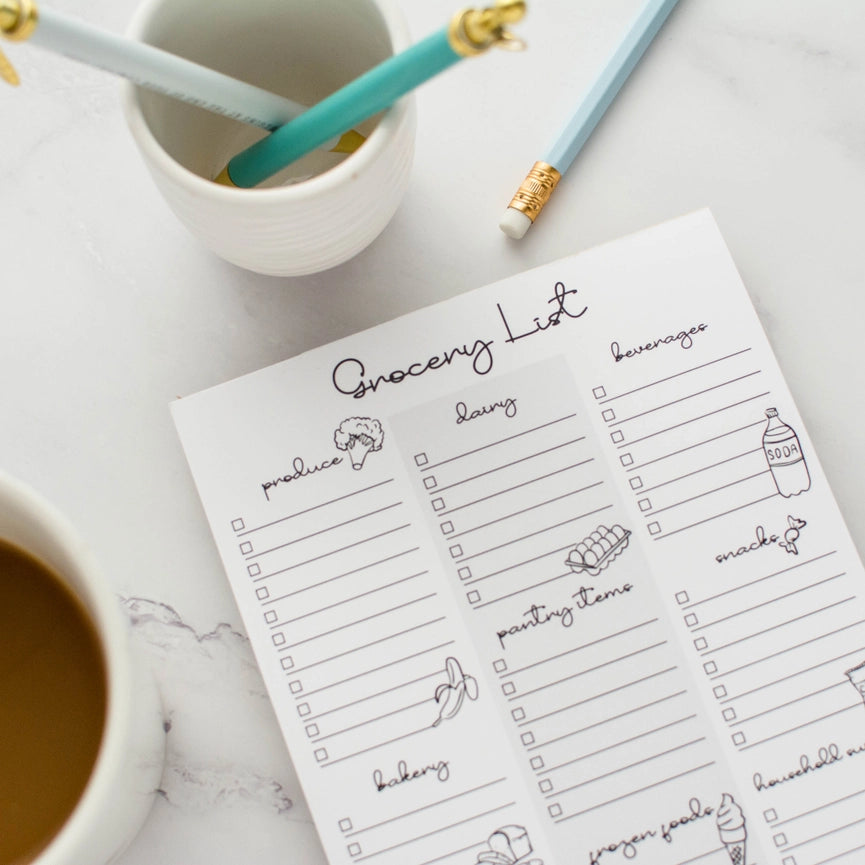 Grocery List
produce
bakery
dairy
pantry items
frozen foods
beverages
SODA
snacks
household